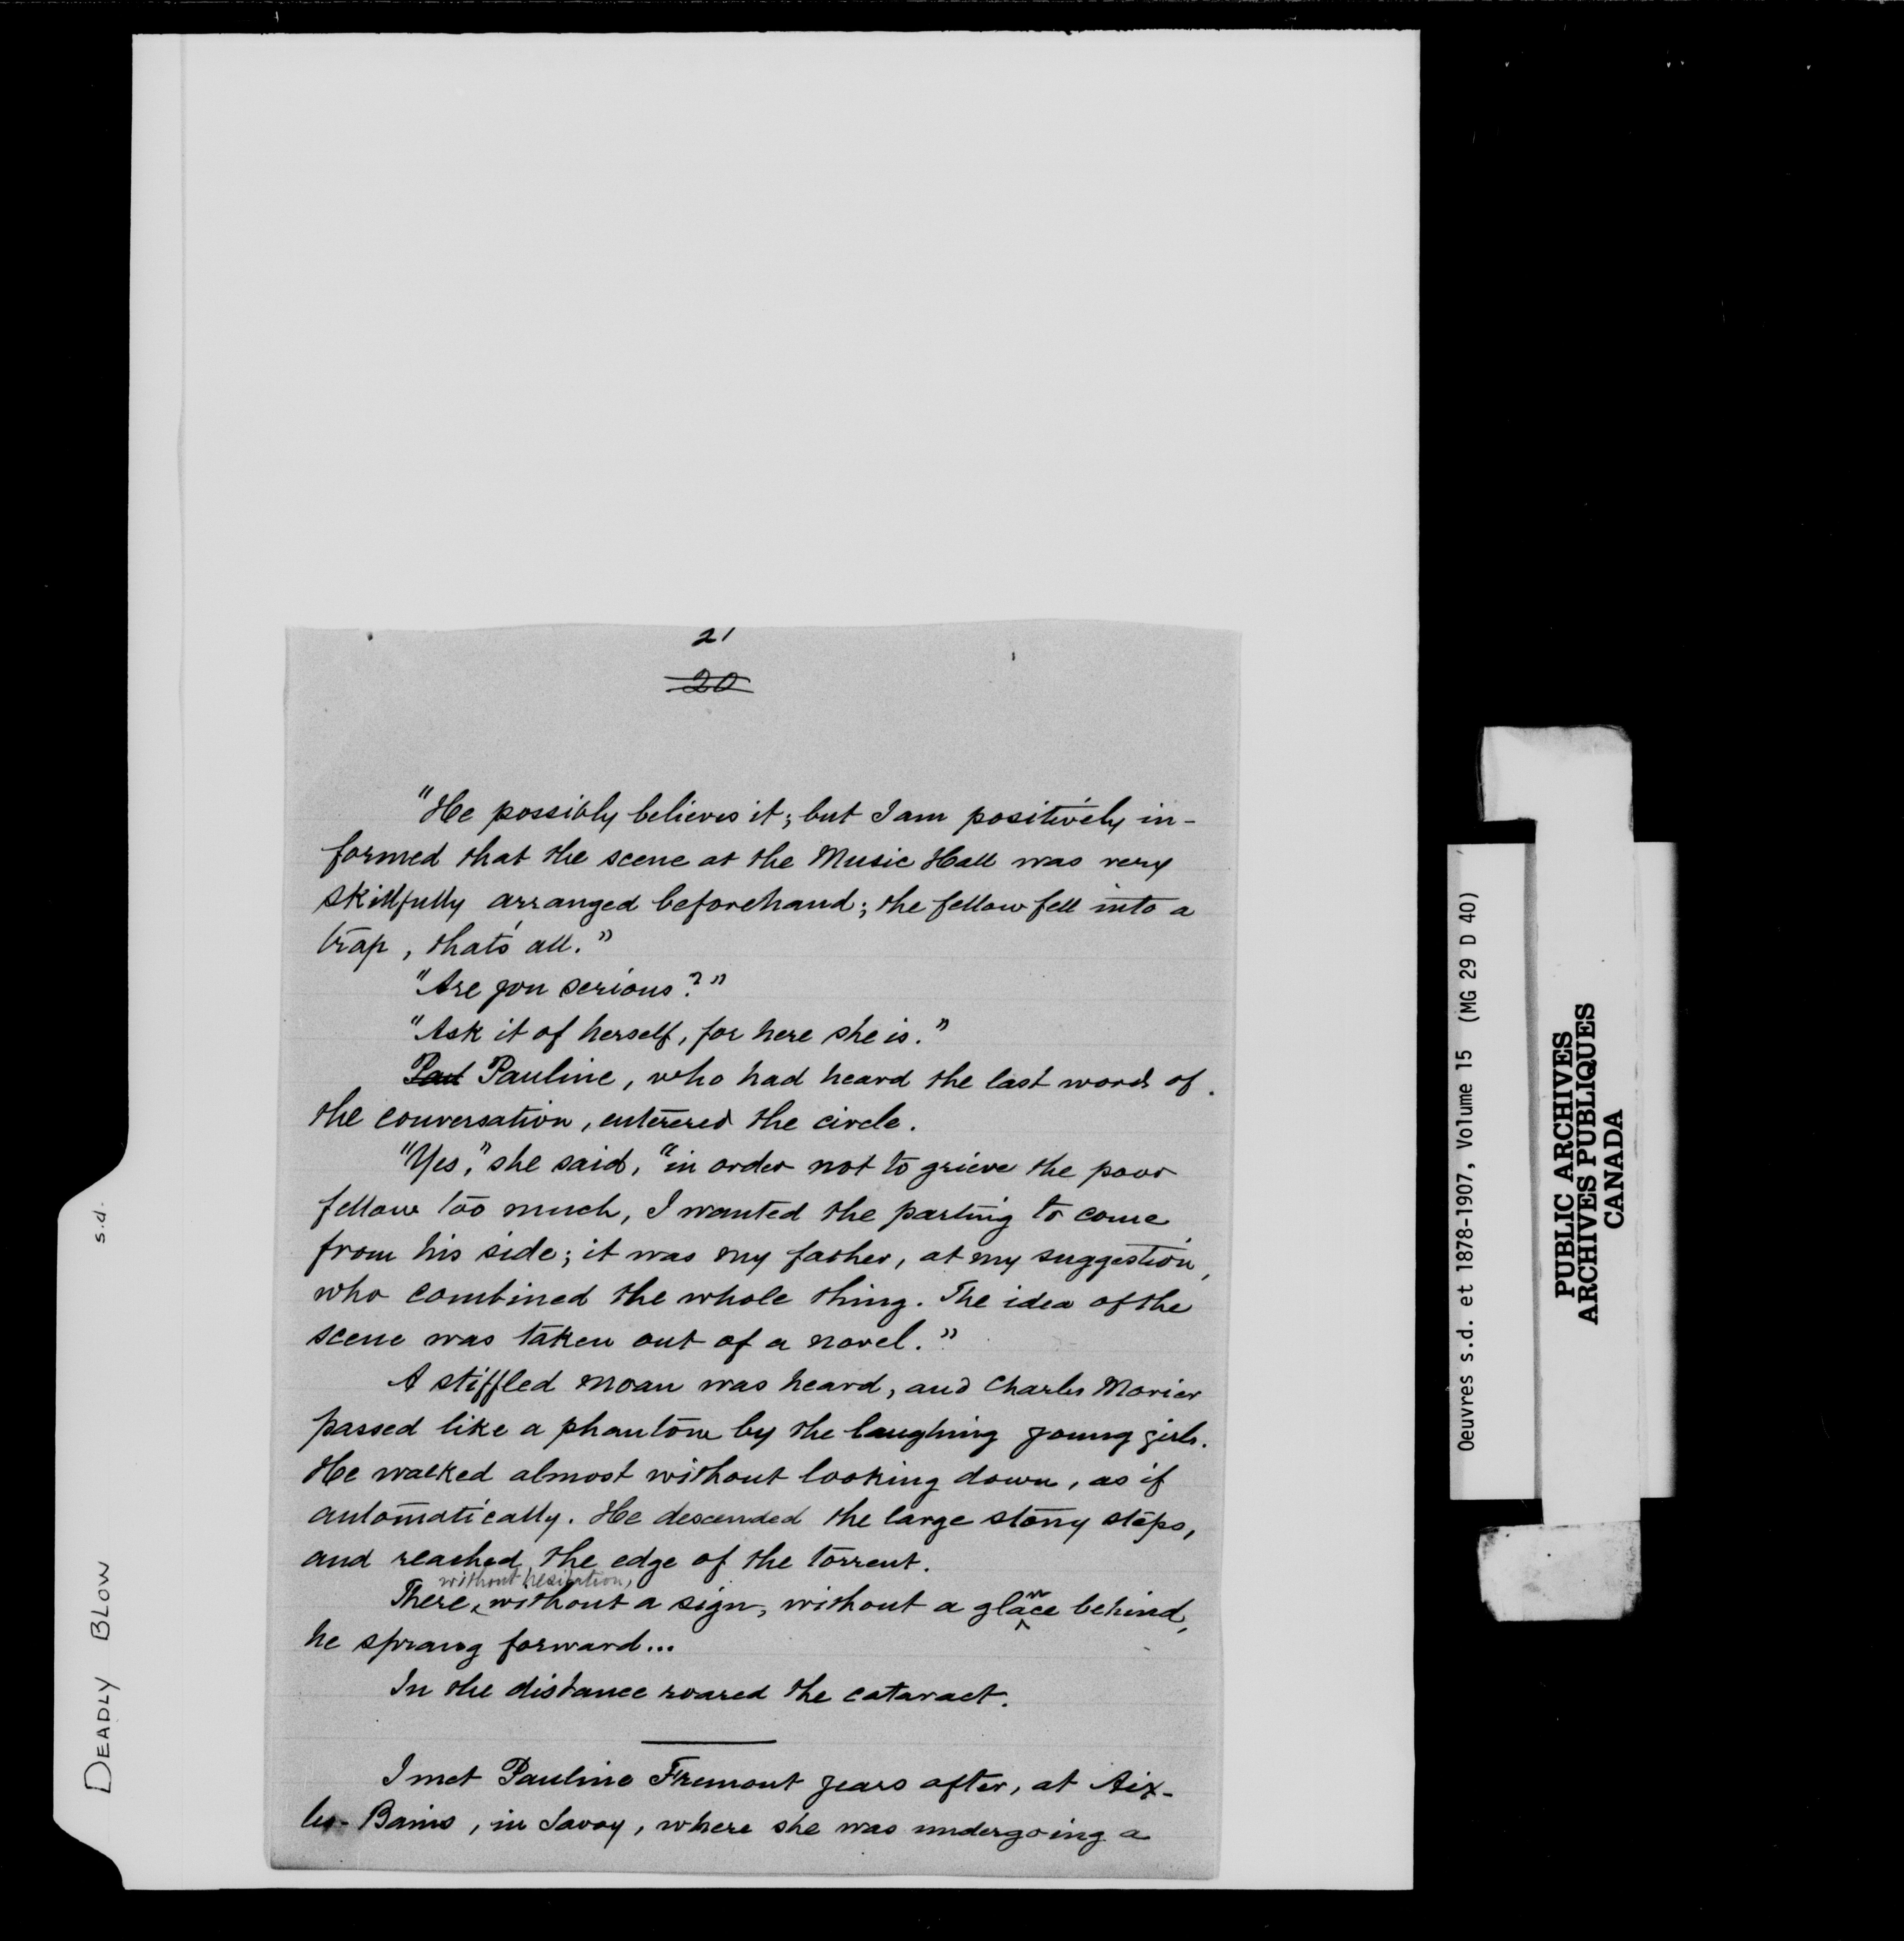 21
20
"He possibly believes it; but I am positively in-
formed that the scene at the Music Hall was very
skillfully arranged beforehand; the fellow fell into a
trap, that's all."
"Are you serious?"
"Ask it of herself, for here she is."
Paul Pauline, who had heard the last words of
the conversation, enterered the circle.
"Yes," she said, "in order not to grieve the poor
fellow too much, I wanted the parting to come
from his side; it was my father, at my suggestion,
who combined the whole thing. The idea of the
scene was taken out of a novel."
A stiffled moan was heard, and Charles Morier
passed like a phantom by the laughing young girls.
He walked almost without looking down, as if
automatically. He descended the large stony steps,
and reached the edge of the torrent.
without hesitation,
There, without a sign, without a glance behind,
he sprang forward...
In the distance roared the cataract.
I met Pauline Fremont years after, at Aix-
les-Bains, in Savoy, where she was undergoing a
DEADLY BLOW s.d.
Oeuvres s.d. et 1878-1907, Volume 15 (MG 29 D 40)
PUBLIC ARCHIVES
ARCHIVES PUBLIQUES
CANADA